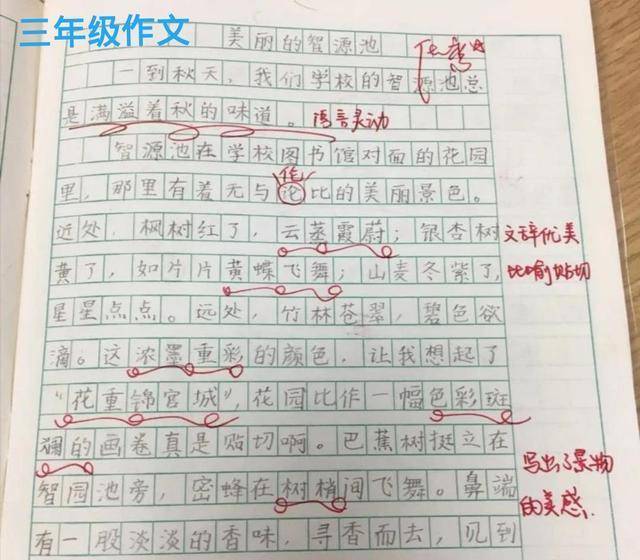 三年级作文
美丽的智源池
一到秋天,我们学校的智源池总
是满溢着秋的味道。
语言灵动
智源池在学校图书馆对面的花园
里,那里有着无与论比的美丽景色。
伦
近处,枫树红了,云蒸霞蔚;银杏树
文辞优美
黄了,如片片黄蝶飞舞;山麦冬紫了,
比喻贴切
星星点点。远处,竹林苍翠,碧色欲
滴。这浓墨重彩的颜色,让我想起了
“花重锦宫城”,花园比作一幅色彩斑
斓的画卷真是贴切啊。巴蕉树挺立在
写出了景物
智园池旁,密蜂在树梢间飞舞。鼻端
的美感.
有一股淡淡的香味,寻香而去,见到